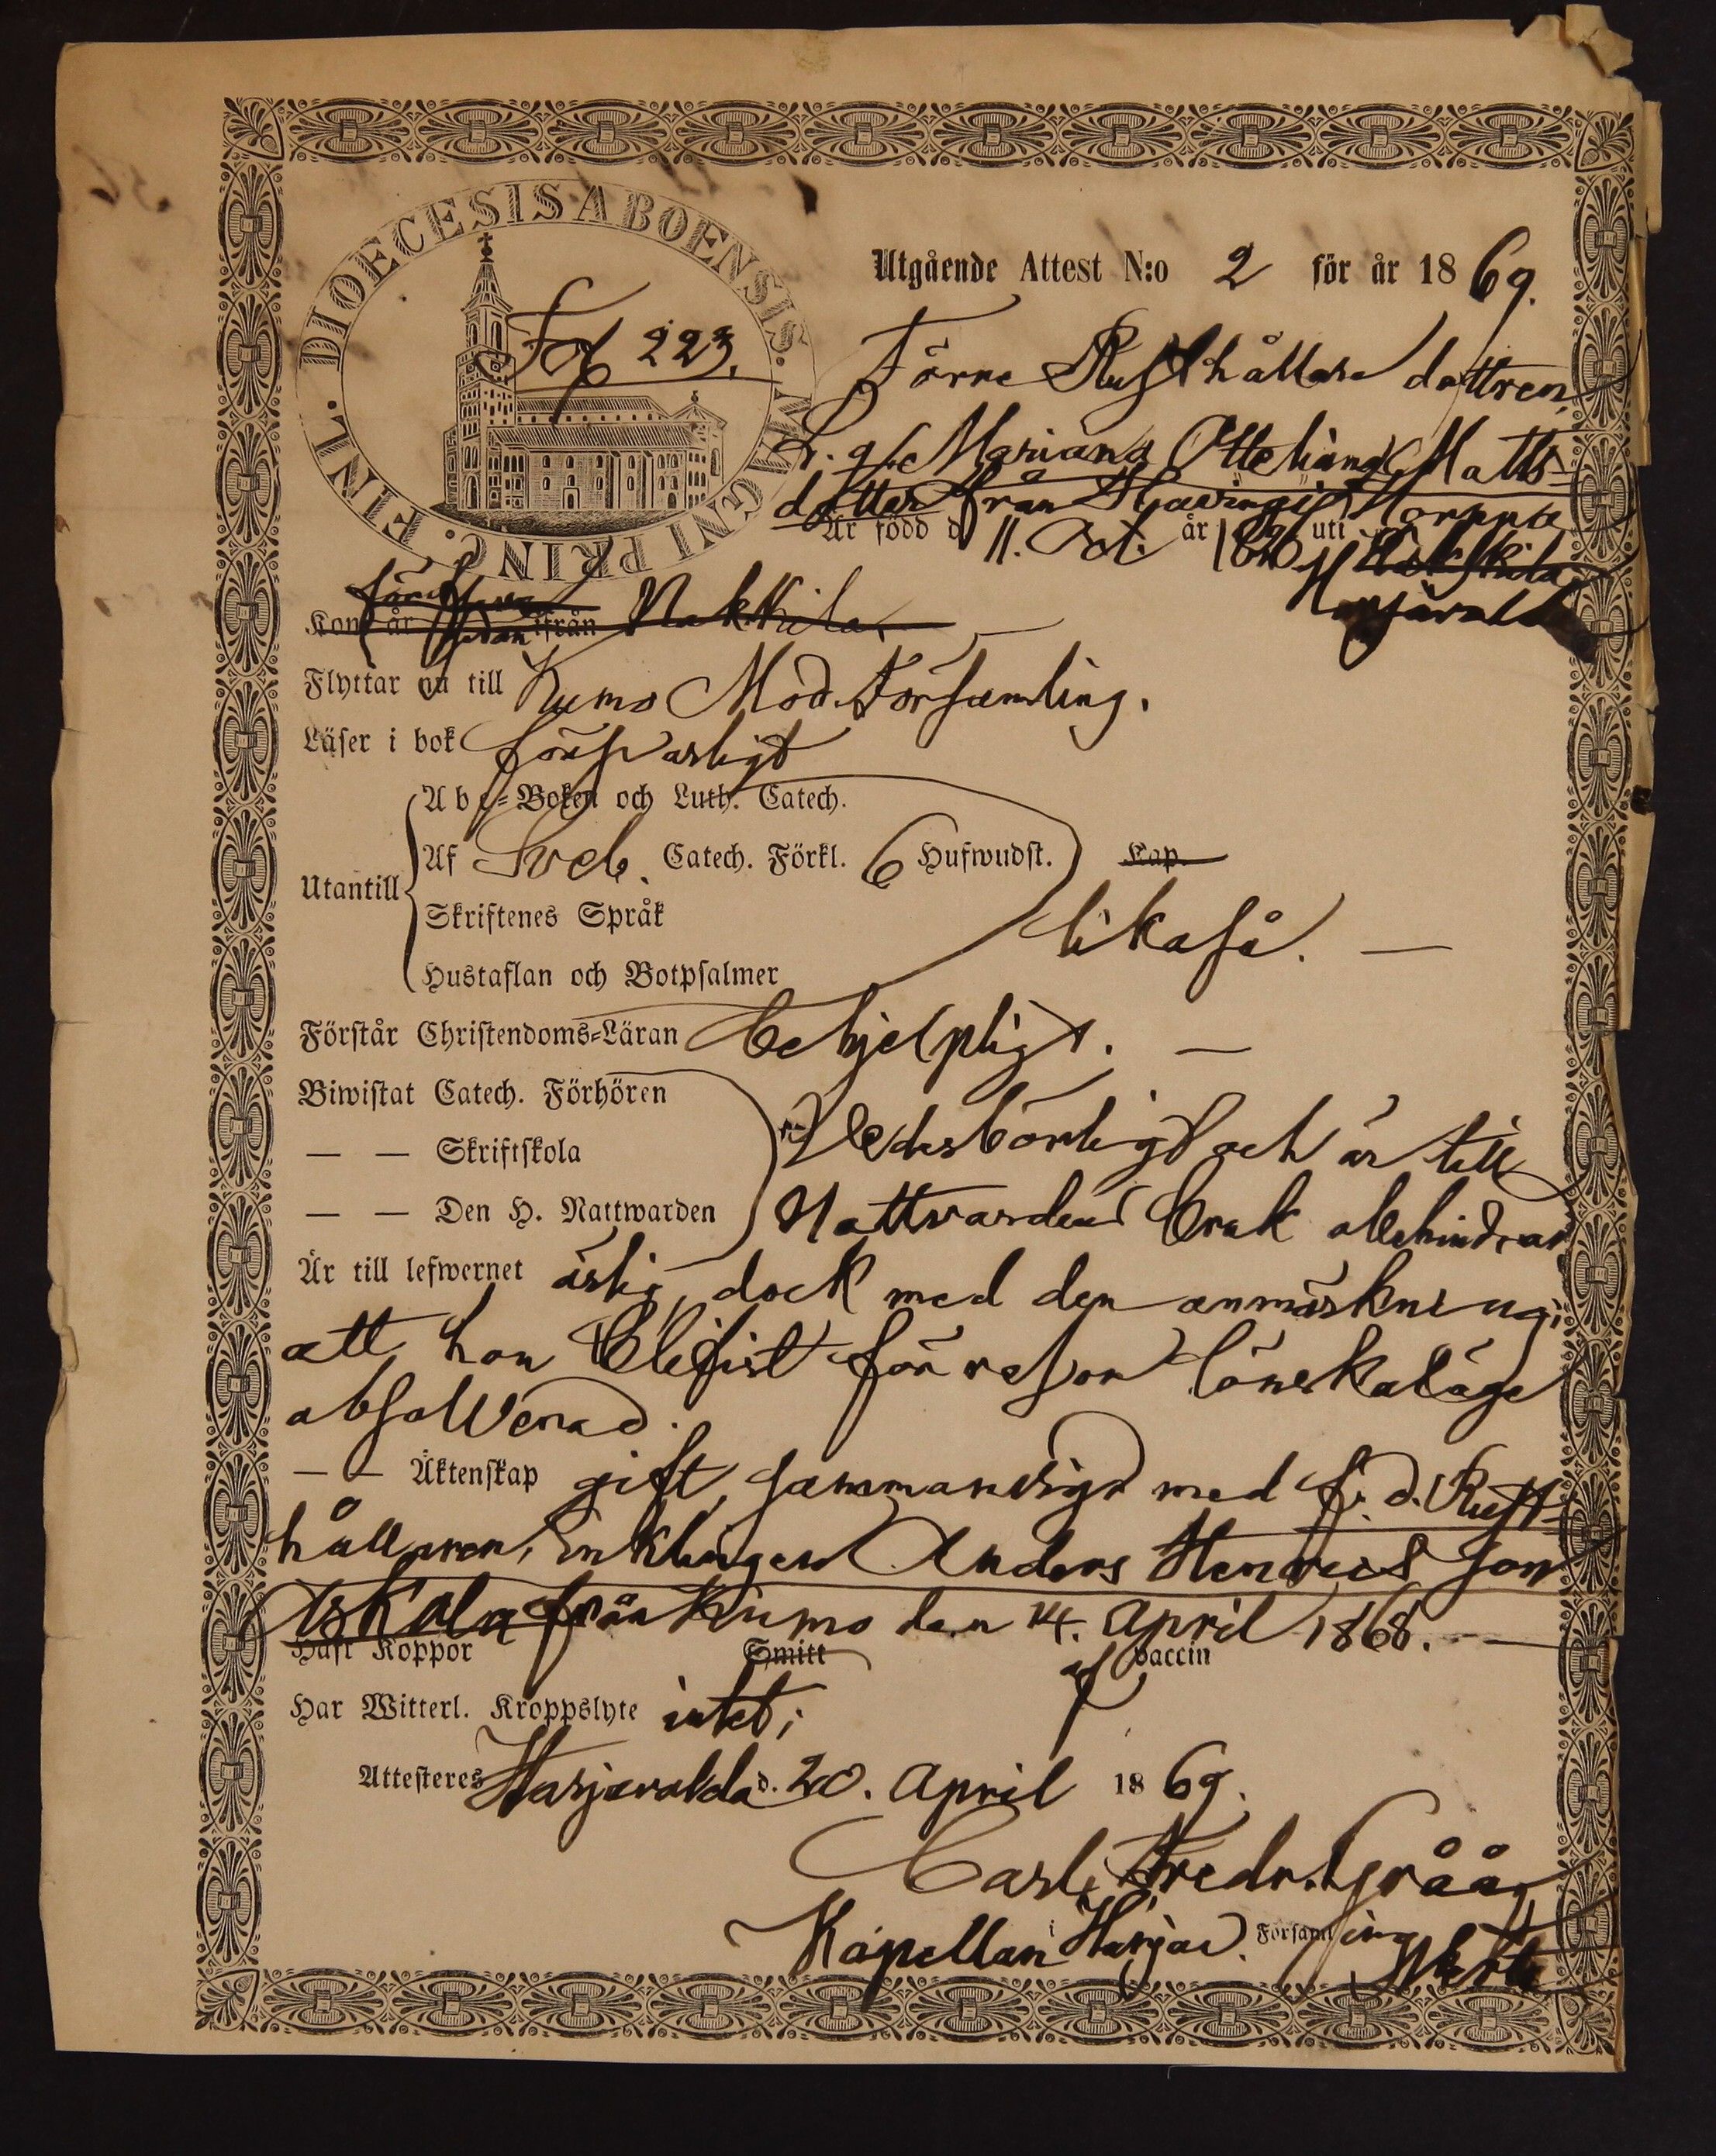 DIOECESIS ABOENSIS. MAGNI PRINC. FINL.
Utgående Attest N:o 2 för år 1869.
Fol 223.
Förre Rusthållare dottren,
Mariana Otteliana Matts-
dotter från
Är född d 11. Oct. år 1826 uti
Nakkila
Harjavalla
Kom år sedan ifrån Nakkila
Flyttar nu till Kumo Mod. Församling.
Läser i bok försvarligt
Abc-Boken och Luth. Catech.
Af Sveb. Catech. Förkl. 6 Hufwudst. Kap.
Utantill
Skriftenes Språk
likaså. —
Hustaflan och Botpsalmer
Förstår Christendoms-Läran behjelpligt. —
Biwistat Catech. Förhören
— — Skriftskola Vederbörligt och är till
— — Den H. Nattwarden Nattvardens bruk obehindrad
Är till lefwernet ärlig, dock med den anmärkning,
att hon blifvit för resp lönskaläge
absolverad.
— — Äktenskap gift, sammanvigd med f. d. Rust-
hållaren, Enklingen Anders Henricsson
Askola från Kumo den 14. April 1868. —
Haft Koppor Smitt af vaccin
Har Witterl. Kroppslyte intet;
Attesteras Harjavalda d. 20. April 1869.
Carl Fredr. Gråå
Kapellan i Harjav. Församling